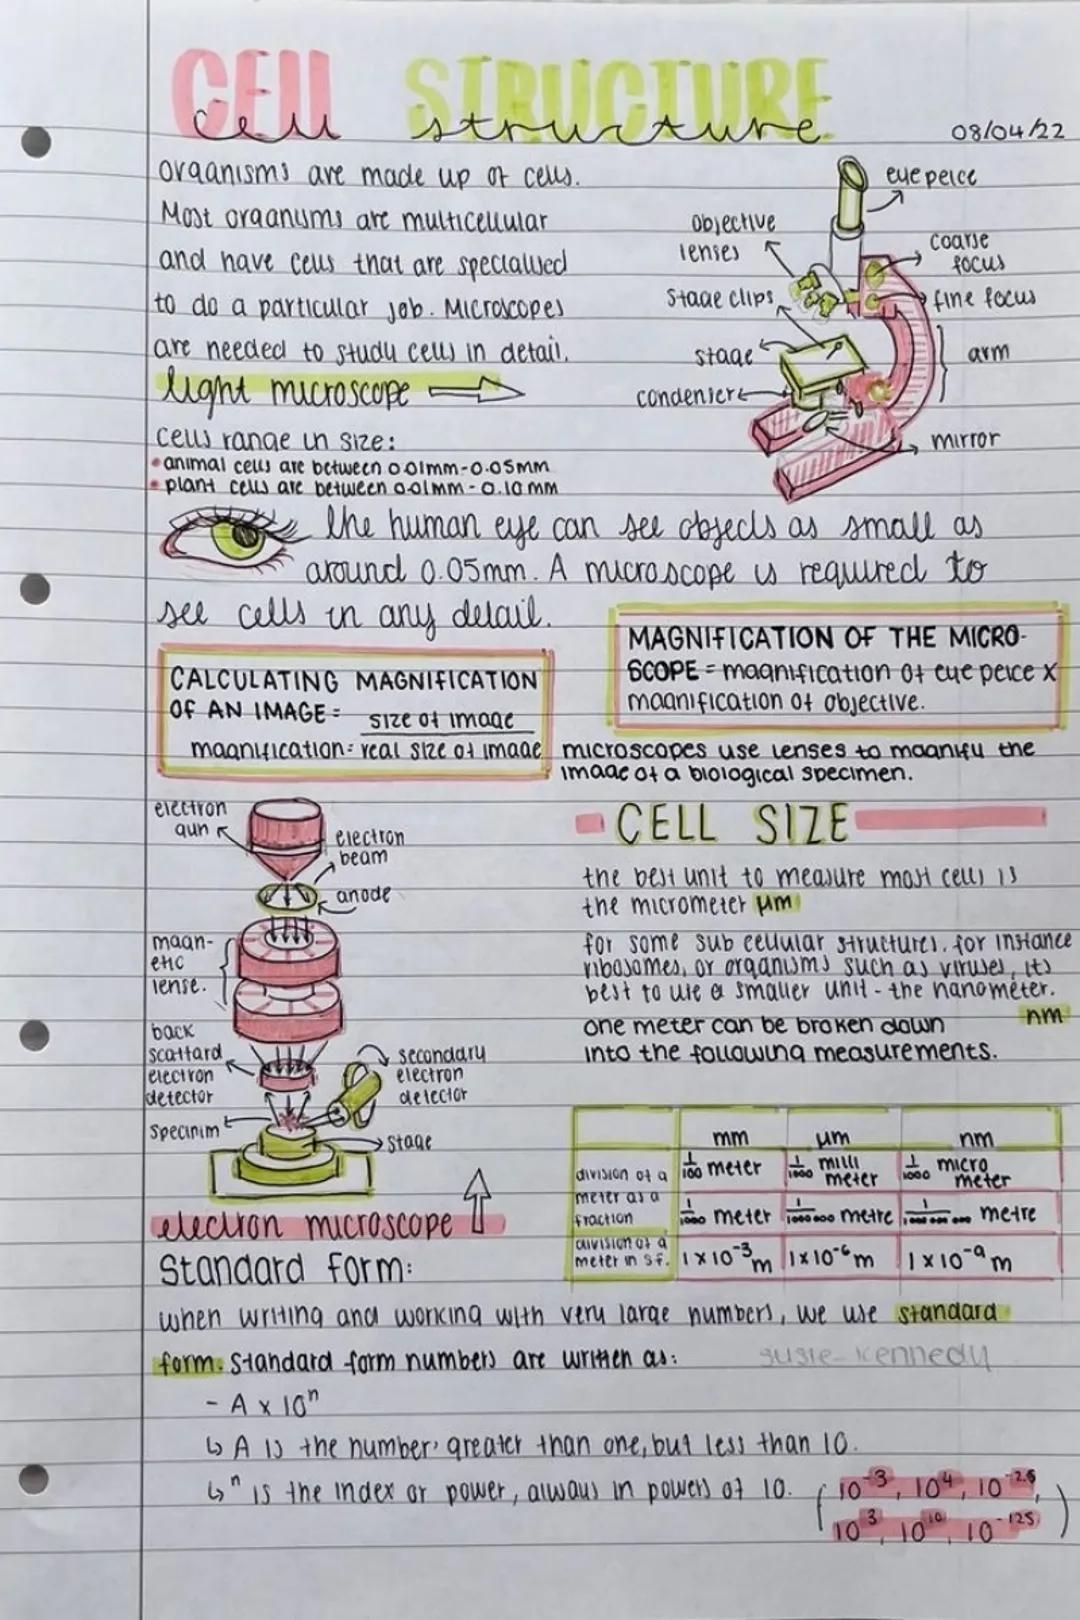 CELL STRUCTURE
cell structure
08/04/22
organisms are made up of cells.
Most organisms are multicellular
and have cells that are specialised
to do a particular job. Microscopes
are needed to study cells in detail.
light microscope
eye peice
objective
lenses
coarse
focus
stage clips
fine focus
stage
arm
condenser
mirror
cells range in size:
• animal cells are between 0.01mm-0.05mm
• plant cells are between 0.01mm - 0.10mm
the human eye can see objects as small as
around 0.05mm. A microscope is required to
see cells in any detail.
CALCULATING MAGNIFICATION
OF AN IMAGE = size of image
magnification: real size of image
MAGNIFICATION OF THE MICRO-
SCOPE = magnification of eye peice x
magnification of objective.
microscopes use lenses to magnify the
image of a biological specimen.
electron
gun
electron
beam
anode
magn-
etic
lense.
back
scattard
electron
detector
secondary
electron
detector
specinim
stage
electron microscope
CELL SIZE
the best unit to measure most cells is
the micrometer µm
for some sub cellular structures, for instance
ribosomes, or organisms such as viruses, its
best to use a smaller unit - the nanometer.
nm
one meter can be broken down
into the following measurements.
mm µm nm
division of a
meter as a
fraction
1/100 meter 1/1000 milli meter 1/1000 micro meter
1/1000 meter 1/1000 000 metre 1/1000 000 000 metre
division of a
meter in s.f. 1x10⁻³m 1x10⁻⁶m 1x10⁻⁹m
Standard form:
when writing and working with very large numbers, we use standard
form. Standard form numbers are written as:
susie-kennedy
- A x 10ⁿ
↳ A is the number, greater than one, but less than 10.
↳ ⁿ is the index or power, always in powers of 10.
(10⁻³, 10⁴, 10⁻²·⁶,
10³, 10¹⁰, 10⁻¹²⁵)